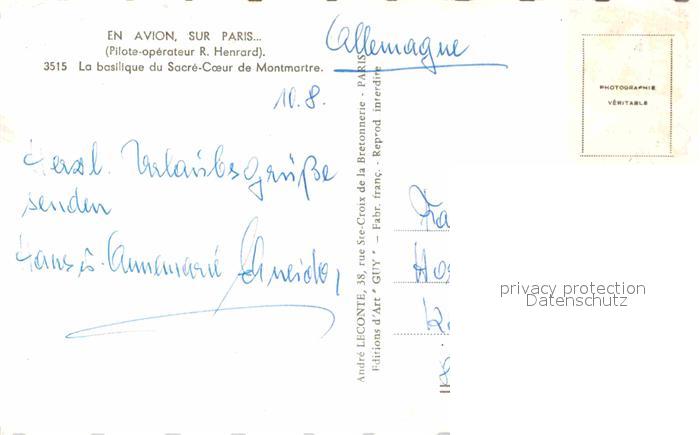 EN AVION, SUR PARIS...
(Pilote-opérateur R. Henrard).
3515 La basilique du Sacré-Cœur de Montmartre.
Allemagne
10.8.
Herzl. Urlaubsgrüße
senden
Hans & Annemarie Schneider
André LECONTE, 38, rue Ste-Croix de la Bretonnerie - PARIS
Editions d'Art "GUY" - Fabr. franç. - Reprod interdite
PHOTOGRAPHIE
VÉRITABLE
Fra
privacy protection
Datenschutz